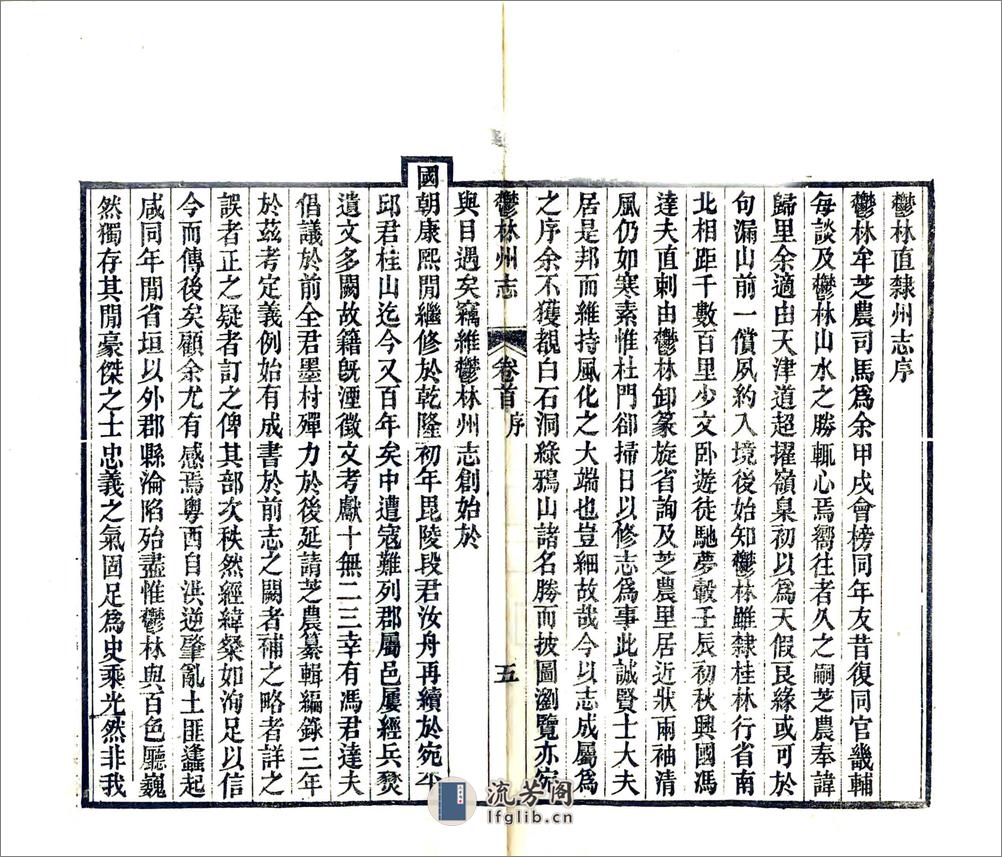 鬱林直隸州志序
鬱林牟芝農司馬爲余甲戌會榜同年友昔復同官畿輔
每談及鬱林山水之勝輒心焉嚮往者久之嗣芝農奉諱
歸里余適由天津道超擢嶺臬初以爲天假良緣或可於
句漏山前一償夙約入境後始知鬱林雖隸桂林行省南
北相距千數百里少文卧遊徒馳夢轂壬辰初秋興國馮
達夫直刺由鬱林卸篆旋省詢及芝農里居近狀兩袖清
風仍如寒素惟杜門卻掃日以修志爲事此誠賢士大夫
居是邦而維持風化之大端也豈細故哉今以志成屬爲
之序余不獲覩白石洞綠鴉山諸名勝而披圖瀏覽亦宛
鬱林州志 卷首 序 五
與目遇矣竊維鬱林州志創始於
國朝康熙閒繼修於乾隆初年毘陵段君汝舟再續於宛平
邱君桂山迄今又百年矣中遭寇難列郡屬邑屢經兵燹
遺文多闕故籍旣湮徵文考獻十無二三幸有馮君達夫
倡議於前全君墨村殫力於後延請芝農纂輯編錄三年
於茲考定義例始有成書於前志之闕者補之略者詳之
誤者正之疑者訂之俾其部次秩然經緯粲如洵足以信
今而傳後矣顧余尤有感焉粵西自洪逆肇亂土匪蠭起
咸同年閒省垣以外郡縣淪陷殆盡惟鬱林與百色廳巍
然獨存其閒豪傑之士忠義之氣固足爲史乘光然非我
流芳阁
lfglib.cn